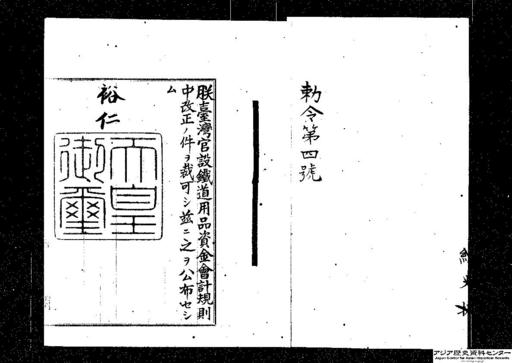 勅令第四號
朕臺灣官設鐵道用品資金會計規則
中改正ノ件ヲ裁可シ茲ニ之ヲ公布セシ
ム
裕仁
天皇
御璽
アジア歴史資料センター
Japan Center for Asian Historical Records